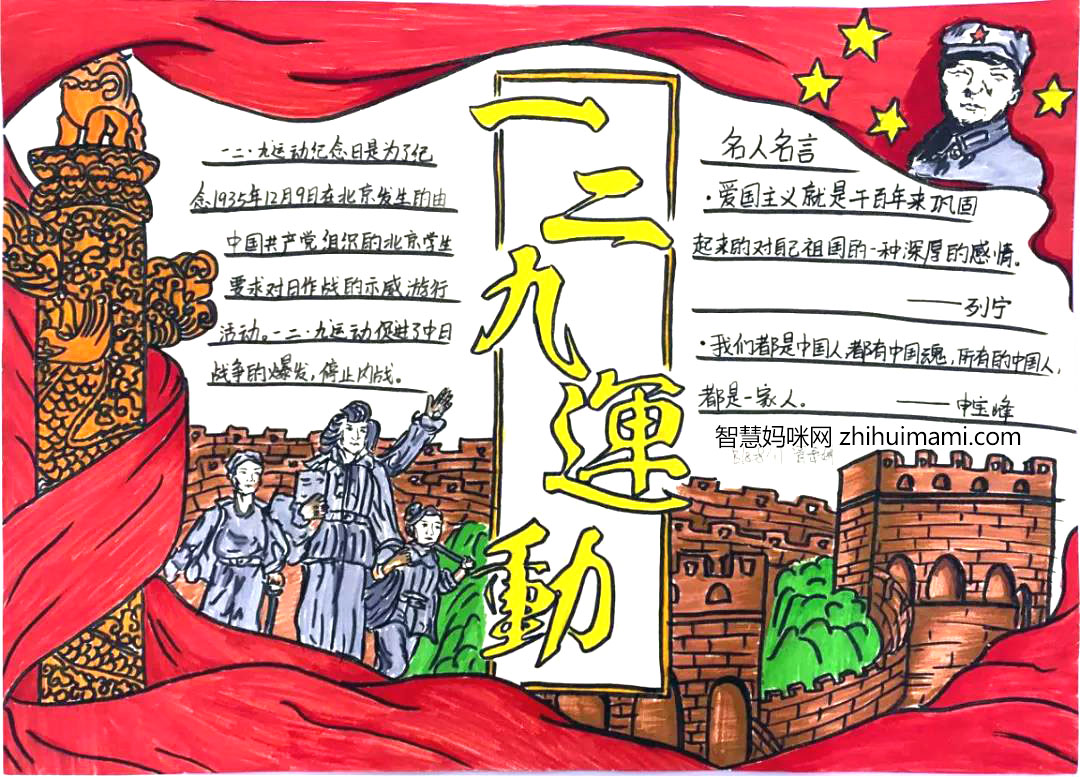 一二九運動
一二·九运动纪念日是为了纪
念1935年12月9日在北京发生的由
中国共产党组织的北京学生
要求对日作战的示威游行
活动。一二·九运动促进了中日
战争的爆发，停止内战。
名人名言
·爱国主义就是千百年来巩固
起来的对自己祖国的一种深厚的感情。
——列宁
·我们都是中国人,都有中国魂,所有的中国人,
都是一家人。 ——申宝峰
智慧妈咪网 zhihuimami.com